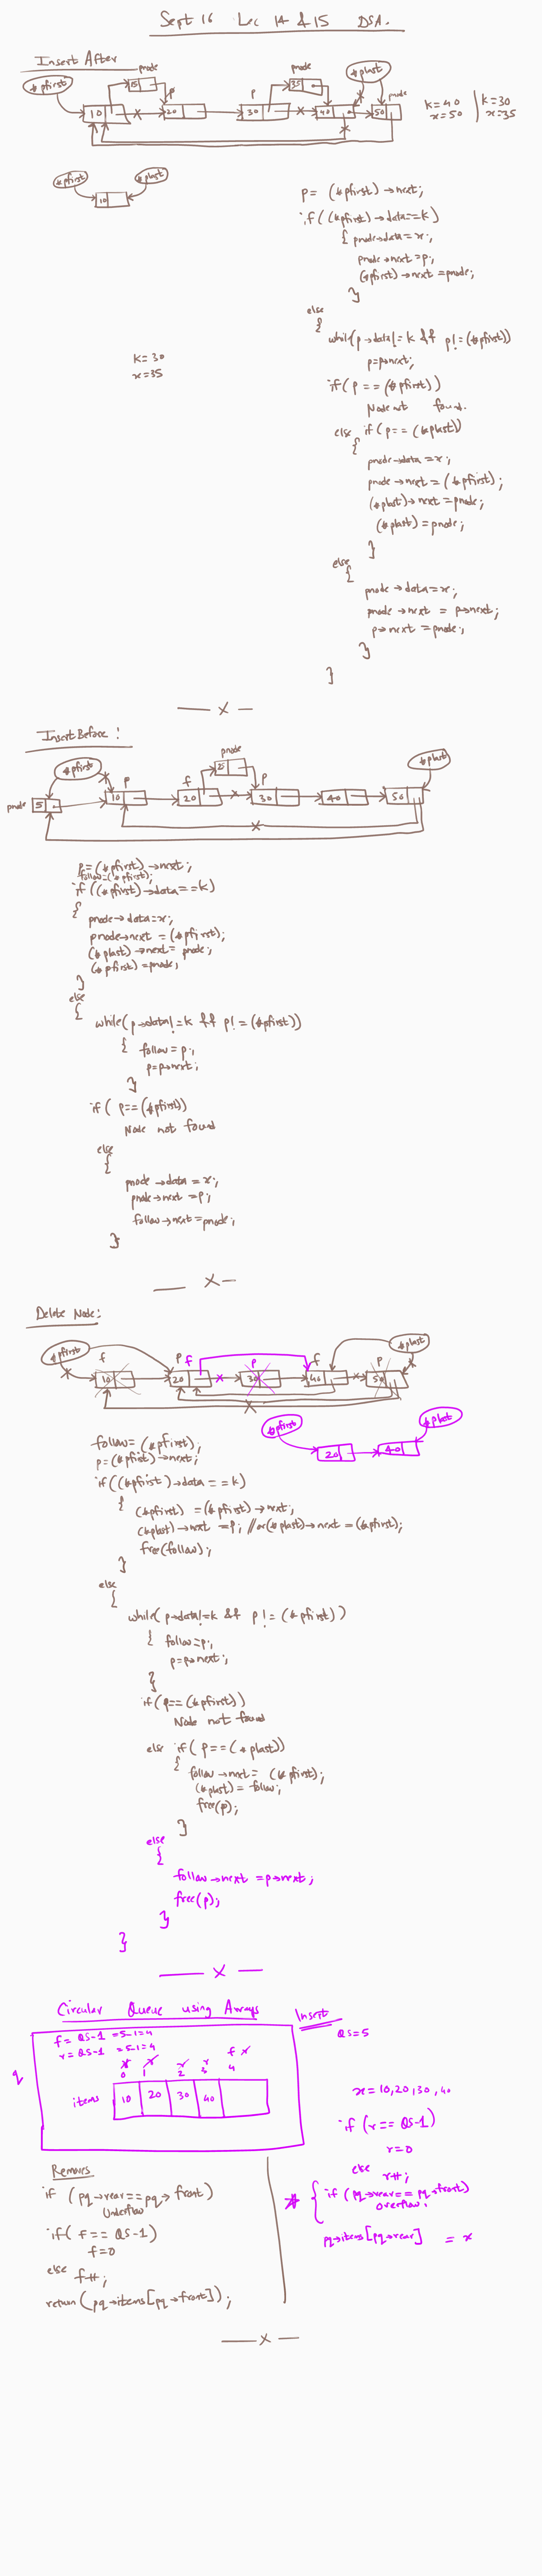 Sept 16 Lec 14 & 15 DSA.
Insert After
pnode pnode
*pfirst 15 p p 35 *plast pnode
10 20 30 40 50
k=40 k=30
x=50 x=35
*pfirst *plast
10
p = (*pfirst)→next;
if((*pfirst)→data==k)
{ pnode→data=x;
pnode→next=p;
(*pfirst)→next=pnode;
}
else
{
while(p→data!=k && p!=(*pfirst))
p=p→next;
k=30
x=35
if(p==(*pfirst))
Node not found.
else if(p==(*plast))
{
pnode→data=x;
pnode→next=(*pfirst);
(*plast)→next=pnode;
(*plast)=pnode;
}
else
{
pnode→data=x;
pnode→next = p→next;
p→next=pnode;
}
}
— x —
Insert Before:
pnode
*pfirst p f 25 p *plast
pnode 5 10 20 30 40 50
p=(*pfirst)→next;
follow=(*pfirst);
if((*pfirst)→data==k)
{
pnode→data=x;
pnode→next=(*pfirst);
(*plast)→next=pnode;
(*pfirst)=pnode;
}
else
{
while(p→data!=k && p!=(*pfirst))
{ follow=p;
p=p→next;
}
if(p==(*pfirst))
Node not found
else
{
pnode→data=x;
pnode→next=p;
follow→next=pnode;
}
— x —
Delete Node:
*pfirst f p f p f p *plast
10 20 30 40 50
*pfirst *plast
20 40
follow=(*pfirst);
p=(*pfirst)→next;
if((*pfirst)→data==k)
{
(*pfirst) =(*pfirst)→next;
(*plast)→next =p; //or(*plast)→next=(*pfirst);
free(follow);
}
else
{
while(p→data!=k && p!=(*pfirst))
{ follow=p;
p=p→next;
}
if(p==(*pfirst))
Node not found
else if(p==(*plast))
{
follow→next= (*pfirst);
(*plast)=follow;
free(p);
}
else
{
follow→next=p→next;
free(p);
}
}
— x —
Circular Queue using Arrays
Insert
QS=5
f= QS-1 =5-1=4
r= QS-1 =5-1=4
q
r r r r f r
0 1 2 3 4
items 10 20 30 40
x=10,20,30,40
if(r==QS-1)
r=0
else
r++;
* { if(pq→rear==pq→front)
Overflow.
pq→items[pq→rear] = x
Remove
if (pq→rear==pq→front)
Underflow
if(f==QS-1)
f=0
else f++;
return(pq→items[pq→front]);
— x —